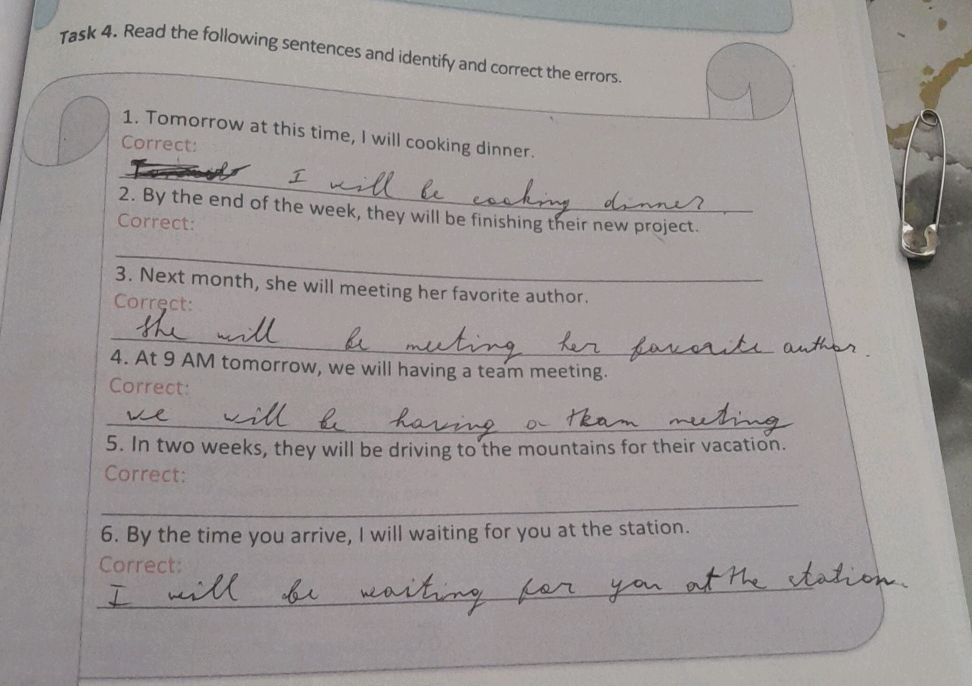 Task 4. Read the following sentences and identify and correct the errors.
1. Tomorrow at this time, I will cooking dinner.
Correct:
I will be cooking dinner
2. By the end of the week, they will be finishing their new project.
Correct:
3. Next month, she will meeting her favorite author.
Correct:
She will be meeting her favorite author.
4. At 9 AM tomorrow, we will having a team meeting.
Correct:
we will be having a team meeting
5. In two weeks, they will be driving to the mountains for their vacation.
Correct:
6. By the time you arrive, I will waiting for you at the station.
Correct:
I will be waiting for you at the station.